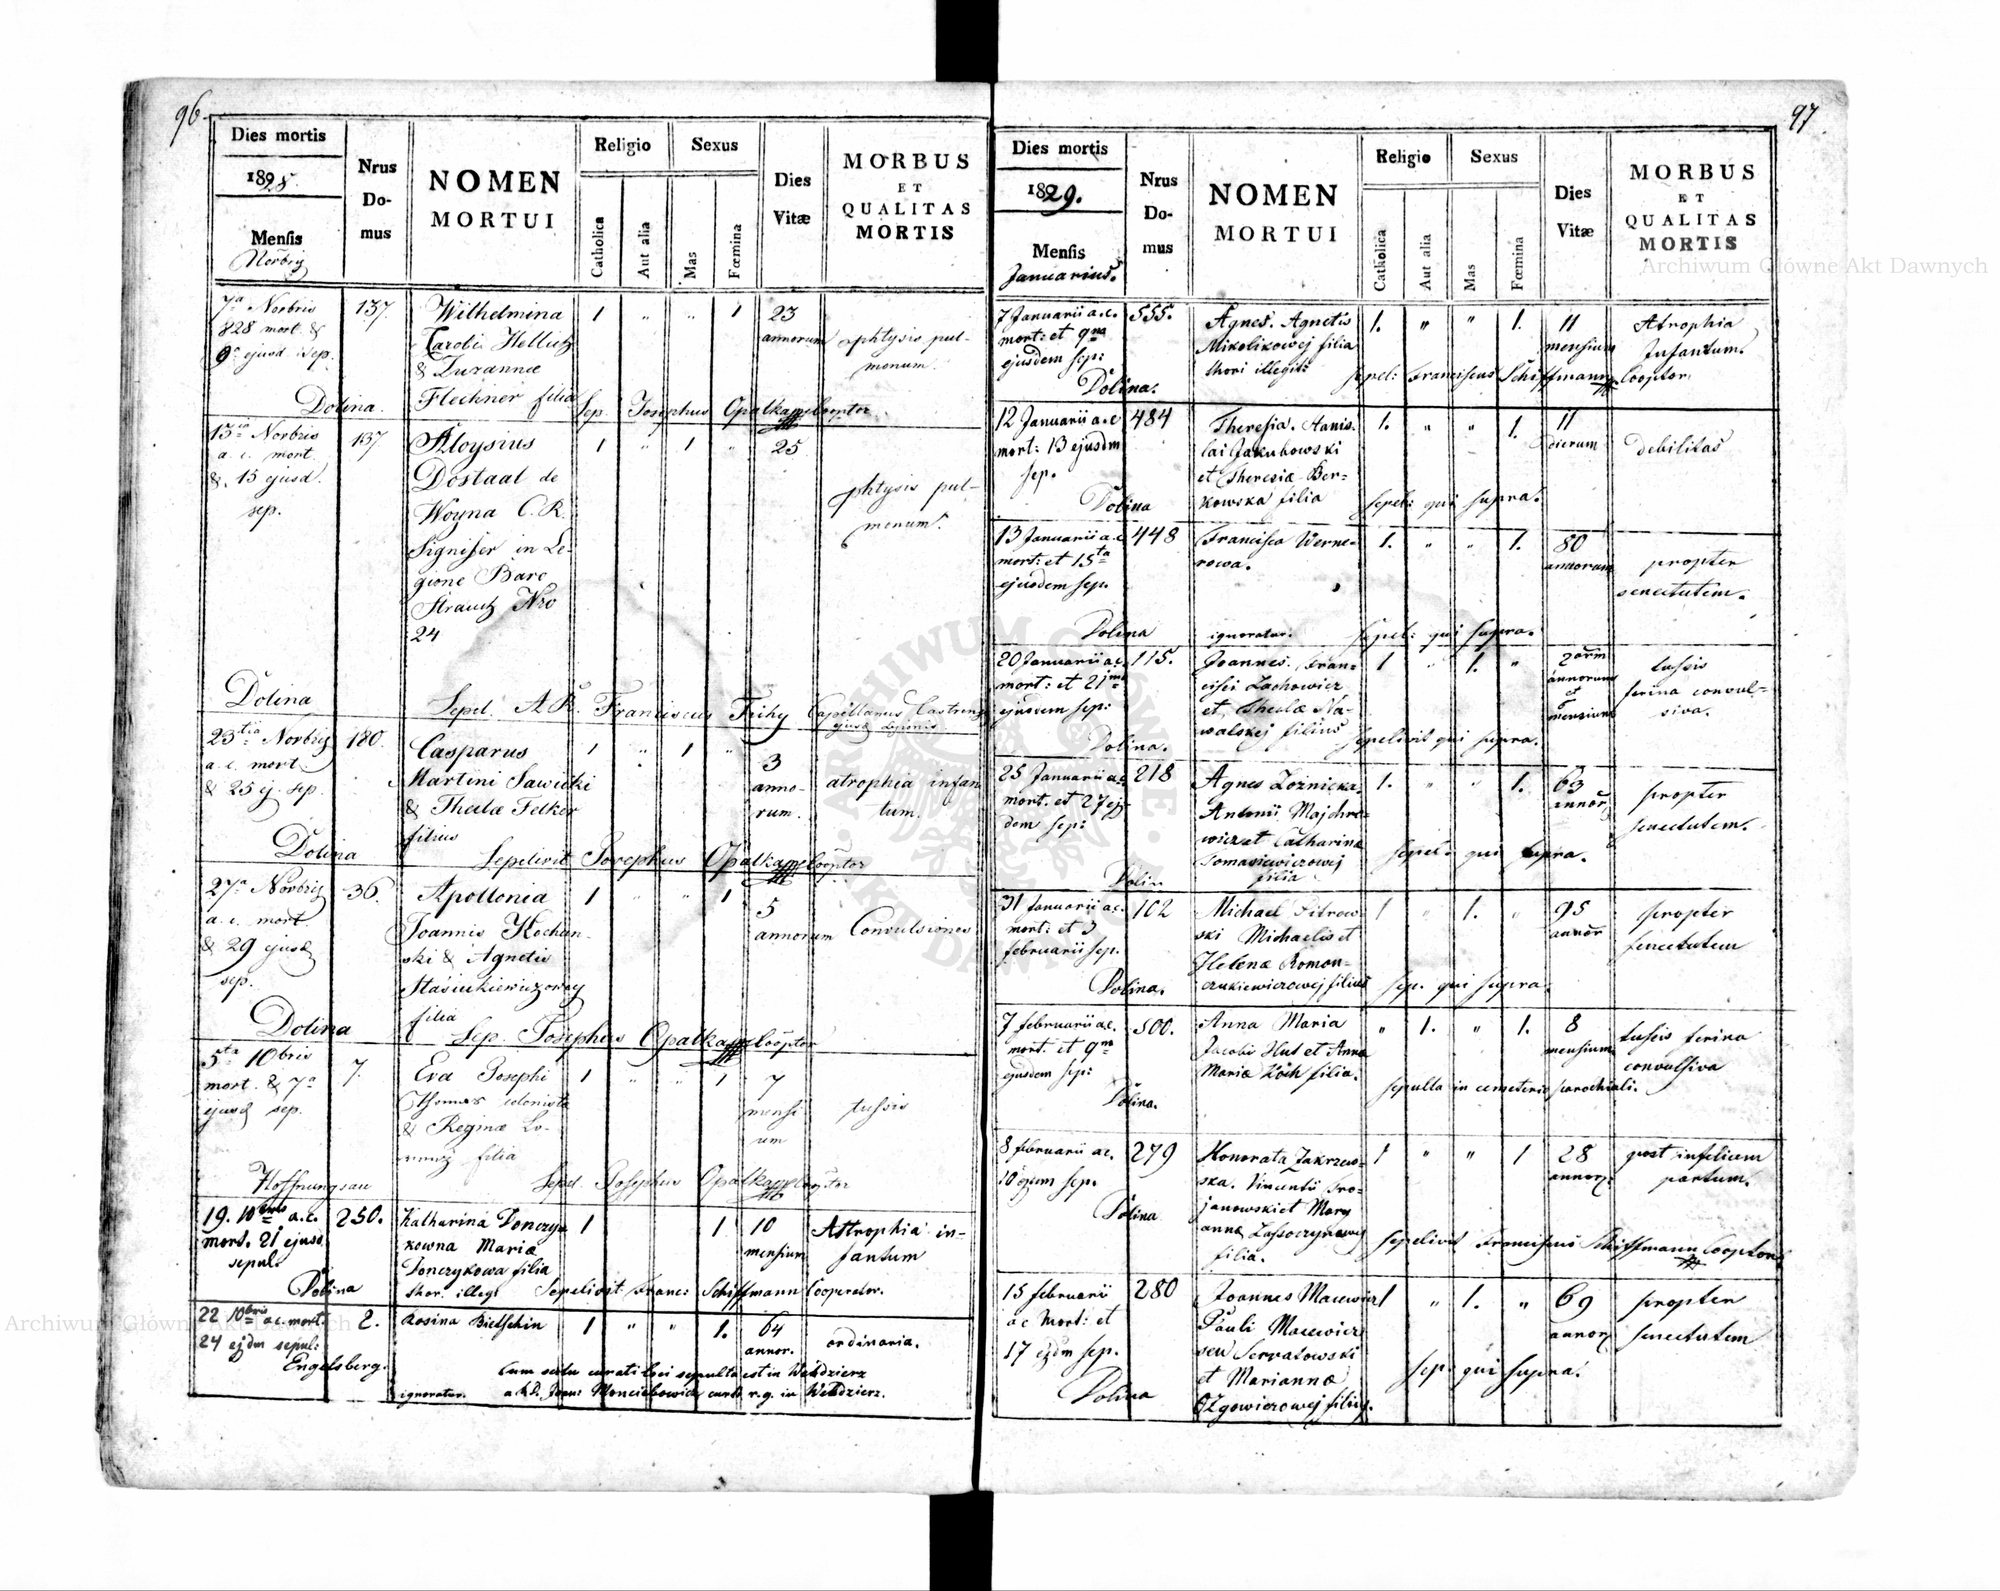 96
Dies mortis
1828.
Mensis
Norbris
Nrus
Do-
mus
NOMEN
MORTUI
Religio
Catholica
Aut alia
Sexus
Mas
Fœmina
Dies
Vitæ
MORBUS
ET
QUALITAS
MORTIS
7a Norbris
828 mort. &
9a ejusd. sep.
Dolina.
137.
Wilhelmina
Caroli Hellich
& Zuzannæ
Fleckner filia
1 " " 1
23
annorum
phtysis pul-
monum.
Sep. Josephus Opalka Cooptor
13ia Norbris
a. c. mort.
& 15 ejusd.
sep.
Dolina
137
Aloysius
Dostaal de
Woyna C. R.
Signifer in Le-
gione Barc
Strauch Nro
24
1 " 1 "
25
phtysis pul-
monum.
Sepel. A. R. Franciscus Tichy Capellanus Castrens
ejusd Legionis
23tia Norbris
a. c. mort.
& 25 ej. sep.
Dolina
180.
Casparus
Martini Sawicki
& Theclæ Felker
filius
1 " 1 "
3
anno-
rum.
atrophia infan
tum.
Sepelivit Josephus Opalka Cooptor
27a Norbris
a. c. mort
& 29 ejusd
sep.
Dolina
36.
Apollonia
Joannis Kochan-
ski & Agnetis
Stasiukiewiczowey
filia
1 " " 1
5
annorum
Convulsiones
Sep. Josephus Opalka Cooptor
5ta 10bris
mort. & 7a
ejusd sep.
Hoffnungsau
7.
Eva Josephi
Thomas colonista
& Reginæ
filia
1 " " 1
7
mensi
um
tussis
Sepel. Josephus Opalka Cooptor
19. 10bris a.c.
mort. 21 ejusd
sepul.
Dolina
250.
Katharina Donczy
kowna Mariæ
Donczykowa filia
thor. illegt
1 1
10
mensium
Attrophia in-
fantum
Sepelivit Franc: Schiffmann Cooperator.
22 10bris a c. mort.
24 ejdm sepul:
Engelsberg.
2.
Rosina Bietschin
ignoratur.
1 " " 1.
64
annor.
ordinaria.
Cum scitu curati loci sepulta est in Weldzierz
a Rd. Joan: Monciebowicz curto r. g. in Weldzierz.
97
Dies mortis
1829.
Mensis
Januarius.
Nrus
Do-
mus
NOMEN
MORTUI
Religio
Catholica
Aut alia
Sexus
Mas
Fœmina
Dies
Vitæ
MORBUS
ET
QUALITAS
MORTIS
7 Januarii a. c.
mort: et 9na
ejusdem sep:
Dolina.
555.
Agnes. Agnetis
Mikolikowej filia
thori illegit:
1. " " 1.
11
mensium
Atrophia
Infantum.
sepel: Franciscus Schiffmann Cooptor
12 Januarii a. c
mort: 13 ejusdm
sep.
Dolina
484
Theresia. Stanis-
lai Jakubowski
et Theresiæ Ber-
kowska filia
1. " " 1.
11
dierum
debilitas
Sepel: qui supra.
13 Januarii a. c
mort: et 15ta
ejusdem sep.
Dolina
448
Francisca Werne-
rowa.
ignoratur.
1. " " 1.
80
annorum
propter
senectutem.
Sepel: qui supra.
20 Januarii a.c.
mort: et 21ma
ejusdem sep:
Dolina.
115.
Joannes. Fran-
cisci Lachowicz
et Theclæ Na-
walskej filius
1 " 1. "
2
annorum
et
6
mensium
tussis
ferina convul-
siva.
Sepelivit qui supra.
25 Januarii a.c.
mort. et 27 ej-
dem sep:
Dolin
218
Agnes Loznicka.
Antonii Majchro-
wicz et Catharina
Tomasiewiczowej
filia
1. " " 1.
63
annor
propter
senectutem.
Sepel: qui supra.
31 Januarii a.c.
mort: et 3
februarii sep.
Dolina.
102
Michael Pitrow-
ski Michaelis et
Helenæ Romon-
czukiewiczowej filius
1 " 1. "
95
annor
propter
senectutem
Sep. qui supra.
7 februarii a.c.
mort. et 9na
ejusdem sep:
Dolina.
500.
Anna Maria
Jacobi Hut et Anna
Mariæ Köch filia.
" 1. " 1.
8
mensium
tussis ferina
convulsiva
Sepulta in cemeterio parochiali.
8 februarii a c.
10 ejusm sep.
Dolina
279
Honorata Zakrzews-
ska. Vincentii Tro-
janowski et Mary
annæ Zassoczynowej
filia.
1 " " 1
28
annor.
post infelicem
partum.
Sepelivit Franciscus Schiffmann Cooptor
15 februarii
a c Mort: et
17 ejdm sep.
Dolina
280
Joannes Macewicz
Pauli Macewicz
seu Serwatowski
et Mariannæ
Ozgowiczowej filius.
1 " 1. "
69
annor
propter
senectutem
Sep: qui supra.
Archiwum Główne Akt Dawnych
Archiwum Główne Akt Dawnych
ARCHIWUM GŁÓWNE AKT DAWNYCH